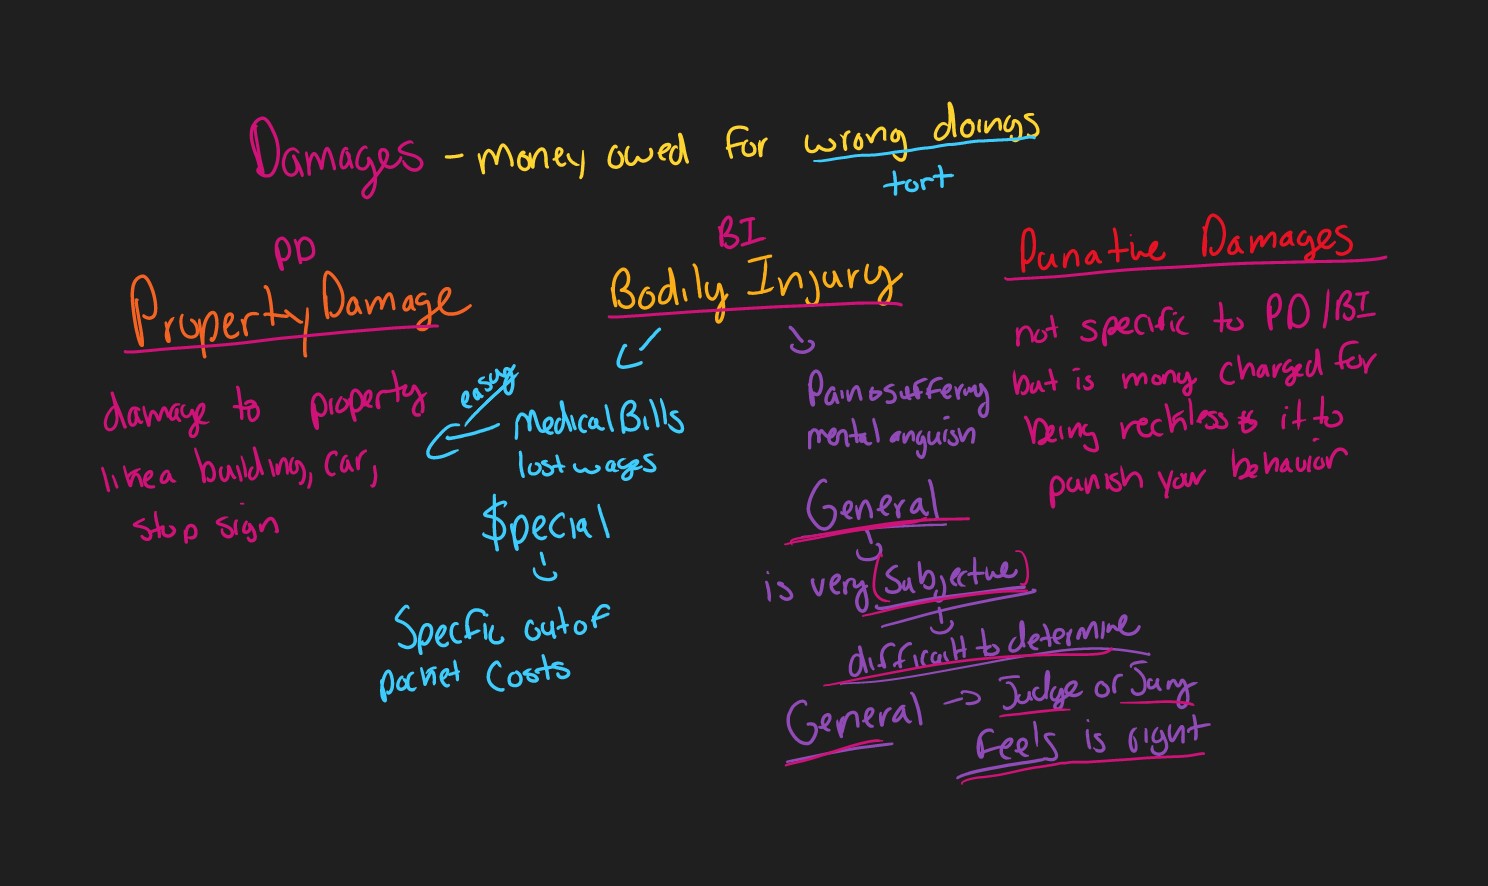 Damages - money owed for wrong doings
tort
PD
Property Damage
damage to property
like a building, car,
stop sign
BI
Bodily Injury
easy
Medical Bills
lost wages
$pecial
Specfic out of
pocket costs
Pain & suffering
mental anguish
General
is very (subjective)
difficult to determine
General → Judge or Jury
feels is right
Punative Damages
not specific to PD/BI
but is money charged for
being reckless & it to
punish your behavior